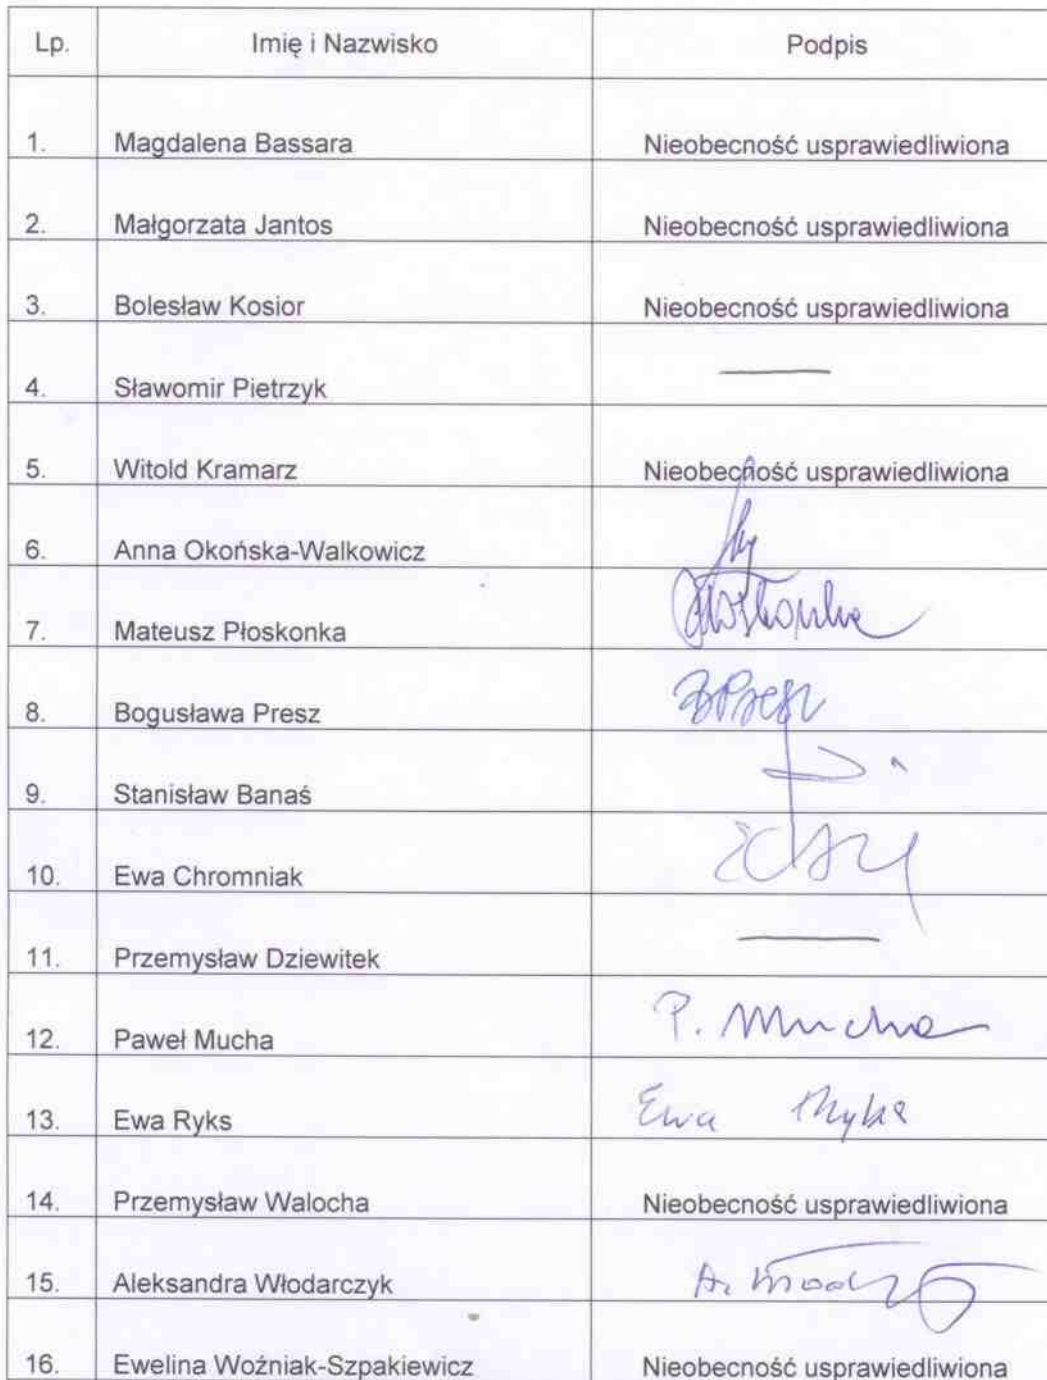 Lp. Imię i Nazwisko Podpis
1. Magdalena Bassara Nieobecność usprawiedliwiona
2. Małgorzata Jantos Nieobecność usprawiedliwiona
3. Bolesław Kosior Nieobecność usprawiedliwiona
4. Sławomir Pietrzyk
5. Witold Kramarz Nieobecność usprawiedliwiona
6. Anna Okońska-Walkowicz
7. Mateusz Płoskonka
8. Bogusława Presz BPresz
9. Stanisław Banaś
10. Ewa Chromniak
11. Przemysław Dziewitek
12. Paweł Mucha P. Mucha
13. Ewa Ryks Ewa Ryks
14. Przemysław Walocha Nieobecność usprawiedliwiona
15. Aleksandra Włodarczyk
16. Ewelina Woźniak-Szpakiewicz Nieobecność usprawiedliwiona